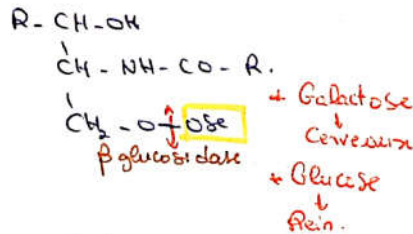 R - CH - OH
CH - NH - CO - R.
CH2 - O + Ose
β glucosidase
+ Galactose
↓
Cerveaux
* Glucose
↓
Rein.